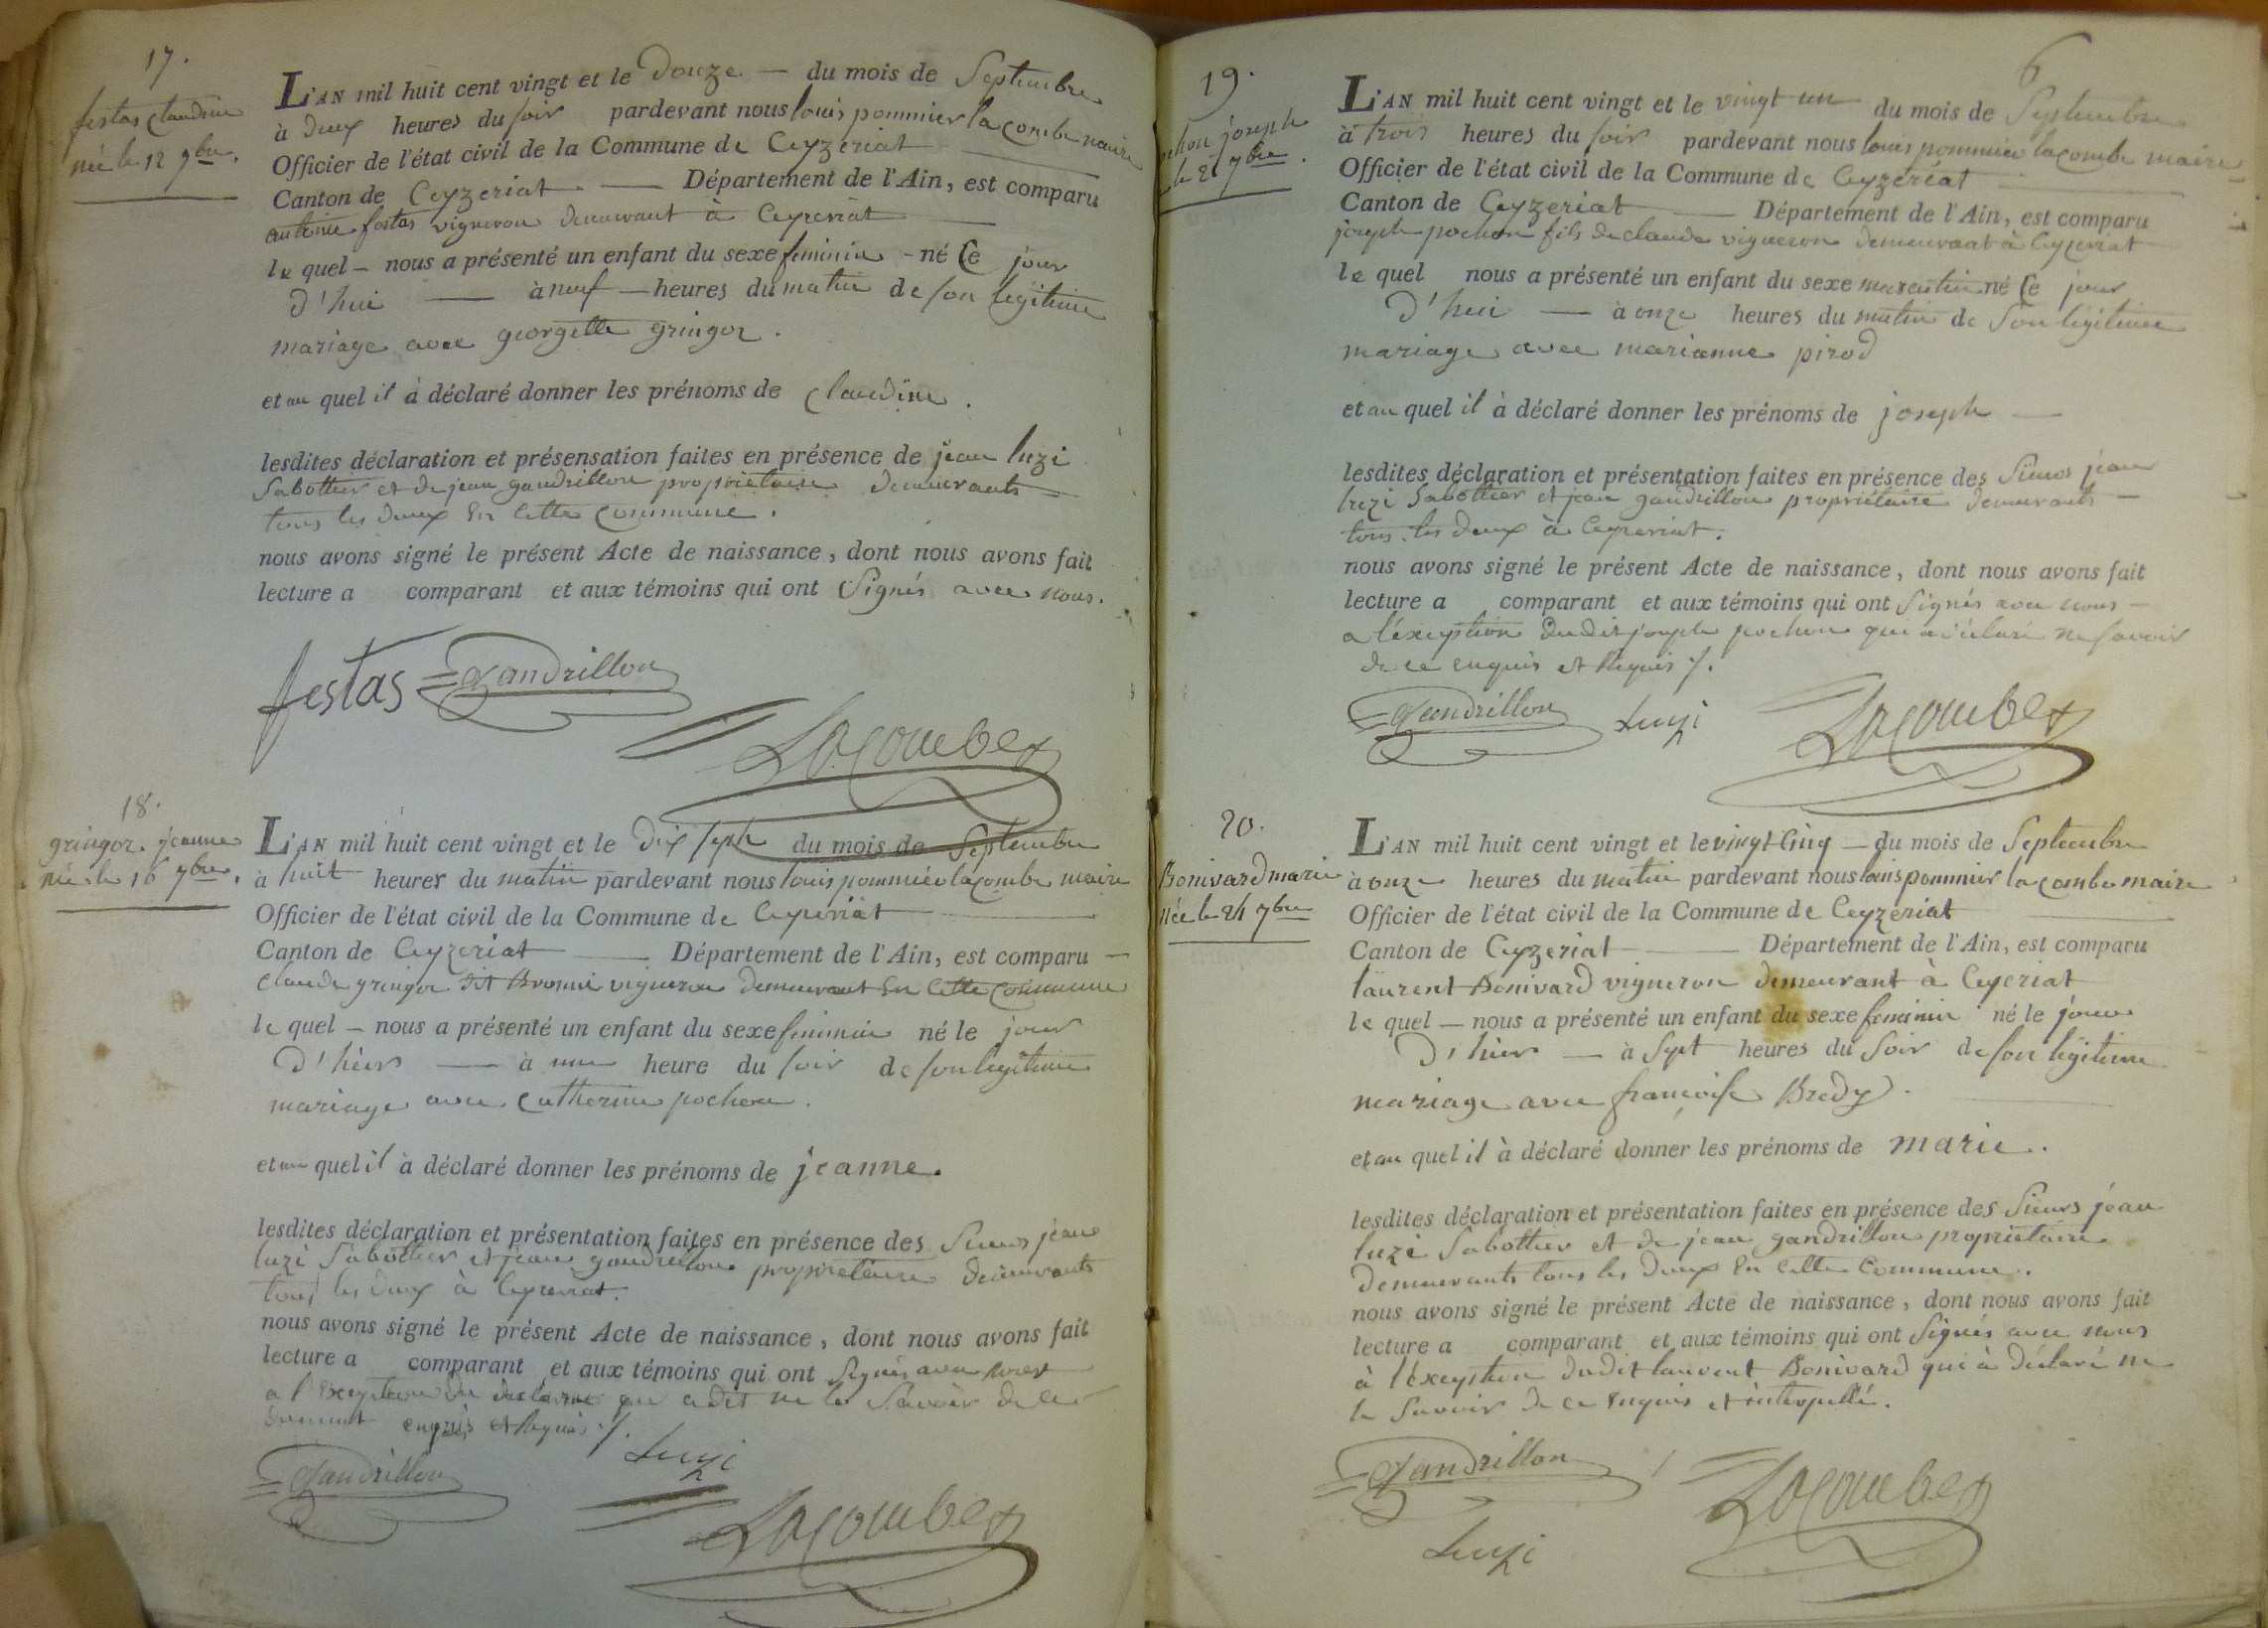 17.
festas claudine
née le 12 7bre.
L'AN mil huit cent vingt et le douze — du mois de Septembre
à deux heures du soir pardevant nous louis pommier lacombe maire
Officier de l'état civil de la Commune de Ceyzeriat
Canton de Ceyzeriat — Département de l'Ain, est comparu
antoine festas vigneron demeurant à Ceyzeriat
le quel — nous a présenté un enfant du sexe feminin - né Ce jour
d'hui — à neuf — heures du matin de son legitime
mariage avec georgette gringoz.
et au quel il à déclaré donner les prénoms de claudine.
lesdites déclaration et présensation faites en présence de jean luzi
Sabottier et de jean gandrillon propriétaire demeurants
tous les deux En Cette Commune.
nous avons signé le présent Acte de naissance, dont nous avons fait
lecture a comparant et aux témoins qui ont Signés avec nous.
festas Gandrillon
Lacombe
18.
gringoz jeanne
née le 16 7bre.
L'AN mil huit cent vingt et le dix sept du mois de Septembre
à huit heures du matin pardevant nous louis pommier lacombe maire
Officier de l'état civil de la Commune de Ceyzeriat
Canton de Ceyzeriat — Département de l'Ain, est comparu —
Claude gringoz dit vigneron demeurant En Cette Commune
le quel — nous a présenté un enfant du sexe feminin né le jour
d'hier — à une heure du soir de son legitime
mariage avec Catherine pochon.
et au quel il à déclaré donner les prénoms de jeanne.
lesdites déclaration et présentation faites en présence des Sieurs jean
luzi Sabottier et jean gandrillon propriétaire demeurants
tous les deux à Ceyzeriat.
nous avons signé le présent Acte de naissance, dont nous avons fait
lecture a comparant et aux témoins qui ont Signés avec nous
a l'exception du qui a dit ne le Savoir de ce
enquis et Requis ./.
Gandrillon Luzi
Lacombe
6
19.
joseph
le 21 7bre.
L'AN mil huit cent vingt et le vingt un du mois de Septembre
à trois heures du soir pardevant nous louis pommier lacombe maire
Officier de l'état civil de la Commune de Ceyzériat
Canton de Ceyzeriat — Département de l'Ain, est comparu
joseph pochon fils de claude vigneron demeurant à Ceyzeriat
le quel nous a présenté un enfant du sexe masculin né Ce jour
d'hui — à onze heures du matin de Son legitime
mariage avec marianne pirod
et au quel il à déclaré donner les prénoms de joseph —
lesdites déclaration et présentation faites en présence des Sieurs jean
luzi Sabottier et jean gandrillon propriétaire demeurants —
tous les deux à Ceyzeriat.
nous avons signé le présent Acte de naissance, dont nous avons fait
lecture a comparant et aux témoins qui ont Signés avec nous —
a l'exception dudit joseph pochon qui a déclaré ne savoir
de ce enquis et Requis ./.
Gandrillon Luzi Lacombe
20.
Bonivard marie
née le 24 7bre
L'AN mil huit cent vingt et le vingt Cinq — du mois de Septembre
à onze heures du matin pardevant nous louis pommier lacombe maire
Officier de l'état civil de la Commune de Ceyzériat
Canton de Ceyzeriat — Département de l'Ain, est comparu
laurent Bonivard vigneron demeurant à Ceyzeriat
le quel — nous a présenté un enfant du sexe feminin né le jour
d'hier — à Sept heures du Soir de son legitime
mariage avec françoise Bredy.
et au quel il à déclaré donner les prénoms de marie.
lesdites déclaration et présentation faites en présence des Sieurs jean
luzi Sabottier et de jean gandrillon propriétaire
demeurants tous les deux En Cette Commune.
nous avons signé le présent Acte de naissance, dont nous avons fait
lecture a comparant et aux témoins qui ont Signés avec nous
à l'exception dudit laurent Bonivard qui à déclaré ne
le Savoir de ce enquis et interpellé.
Gandrillon Lacombe
Luzi